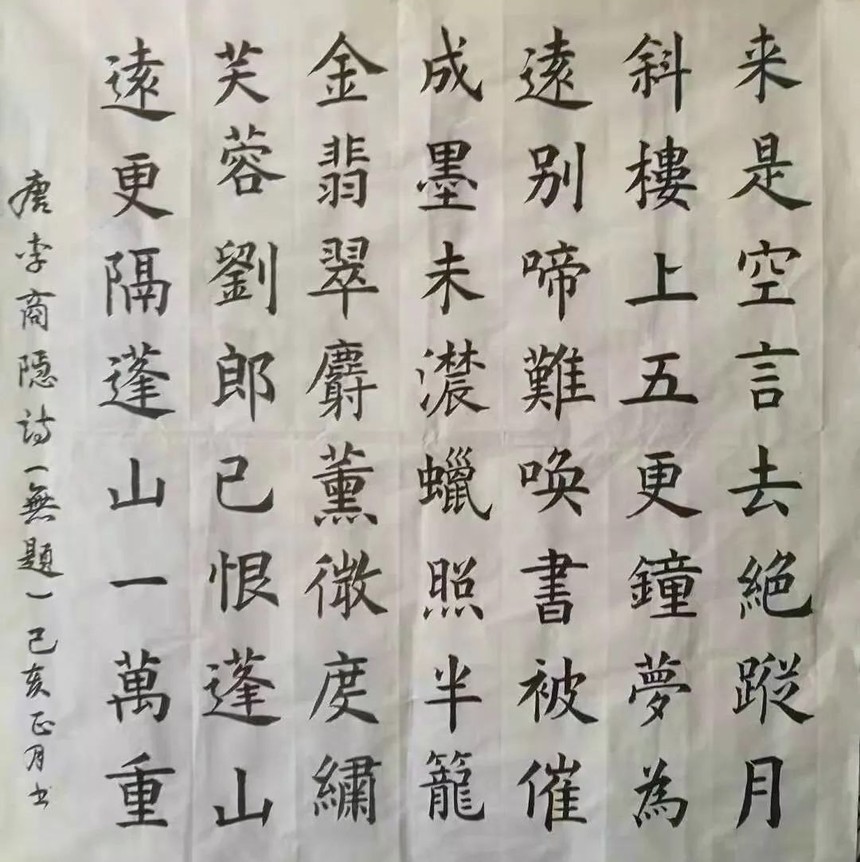 来是空言去絶蹤月
斜樓上五更鐘夢為
遠别啼難唤書被催
成墨未濃蠟照半籠
金翡翠麝薰微度繡
芙蓉劉郎已恨蓬山
遠更隔蓬山一萬重
唐李商隱詩（無題）己亥正月书